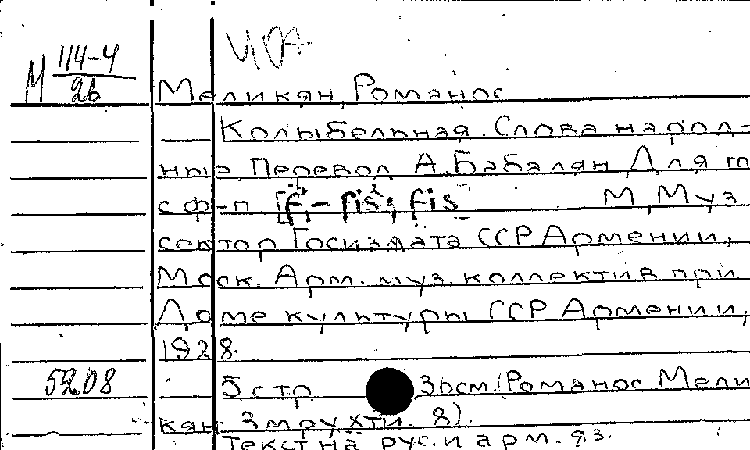 М 114-4
26
Меликян, Романос
Колыбельная. Слова народ-
ные, Перевод А. Бабалян, Для г
с ф-п [f¹-fis²; fis] М, Муз
сектор Госиздата ССР Армении,
Моск. Арм. муз. коллектив при
Доме культуры ССР Армении,
1928.
5208 5 стр. 36см. (Романос Мели
кян Змрухти. 8).
Текст на рус. и арм. яз.